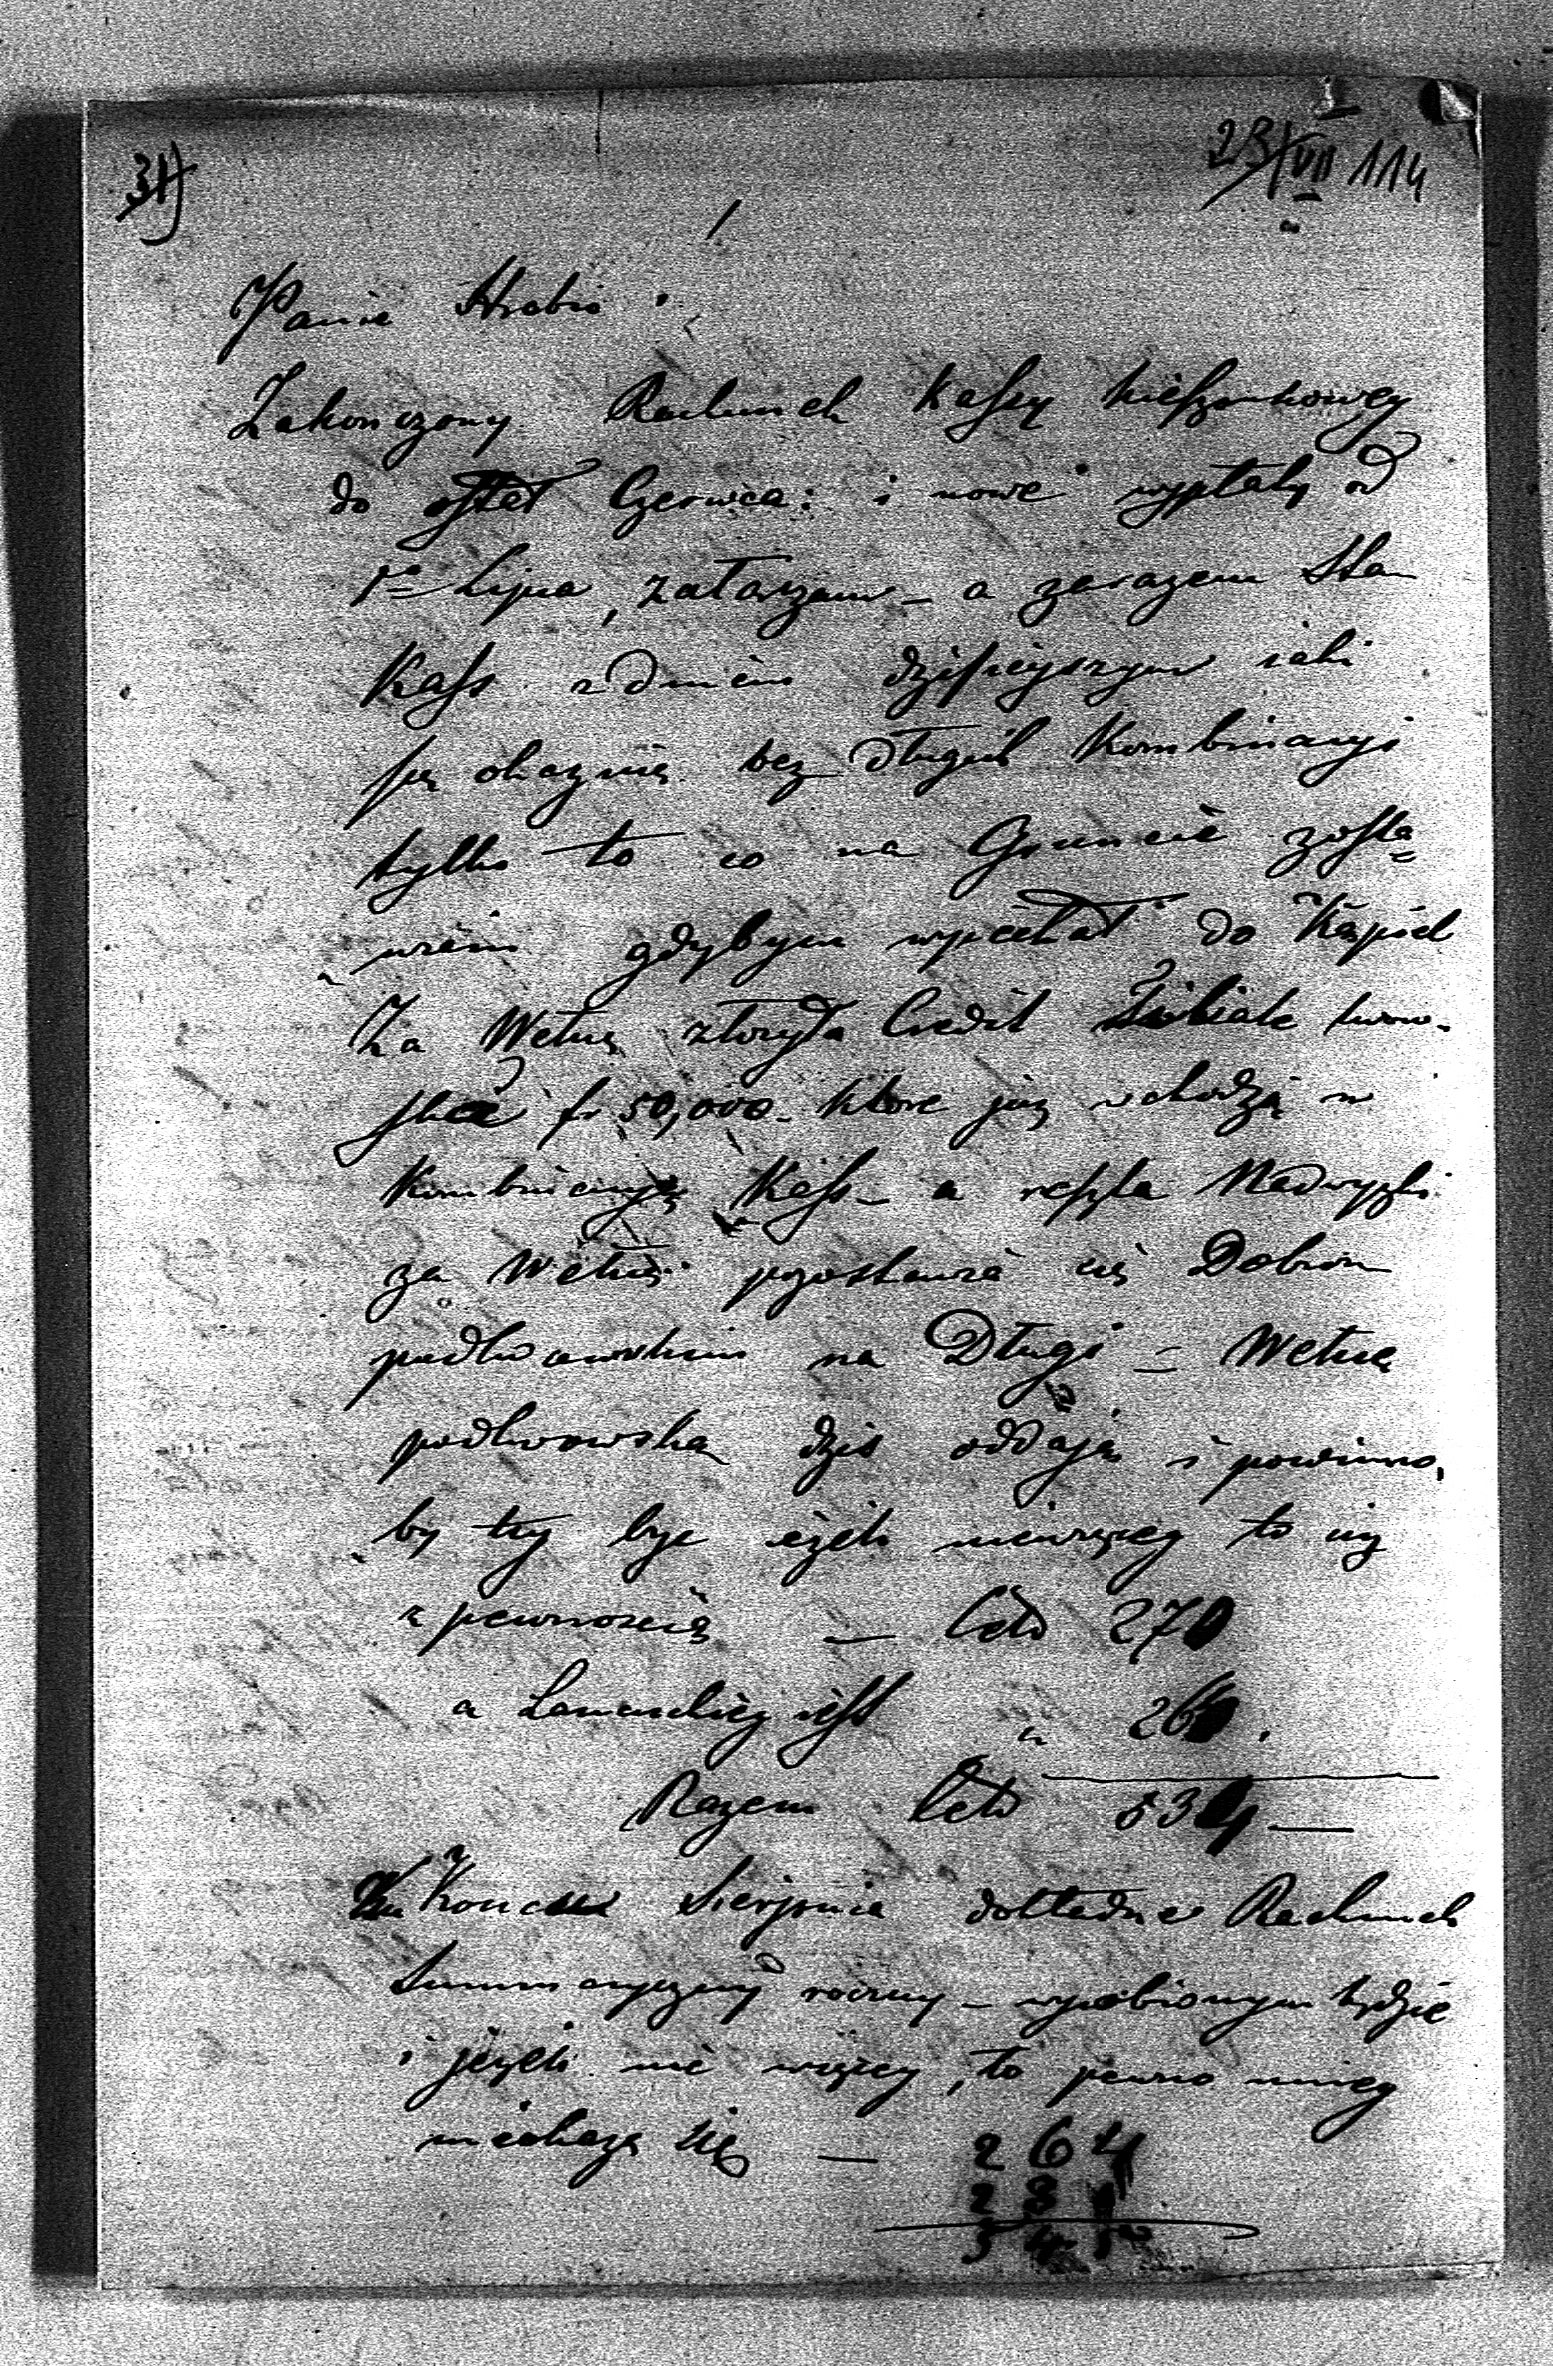 31)
23/VII 114
Panie Hrabio!
Zakonczony Rachunek Kassy kieszonkowey
do ostat Czerwca: i nowe wypłaty od
1go Lipca, załączam – a zarazem Stan
Kass z dniem dzisieyszym iaki
się okaznie bez długich Kombinacyi
tylko to co na Gruncie zosta=
wiam gdybym wyiechał do Kąpiel
Za Wełnę złożyła Credit lwow-
skie fr 50,000 – które już wchodzą w
Kombinacyę Kass – a reszta Nadwyżki
za Wełnę pozostawia się Dobrom
podlwowskim na Długi = Wełnę
podlwowską dziś oddaję i powinno,
by tey być ieżeli niewięcey to iuż
z pewnością — Cetn 270
a Lanuckiey iest „ 264.
Razem Cetn 534 —
W Koncu Sierpnia dokładne Rachunek
Summaryczny roczny – wyrobionym będzie
i jeżeli nie więcey, to pewno mniey
nieokaże się — 264
281
545